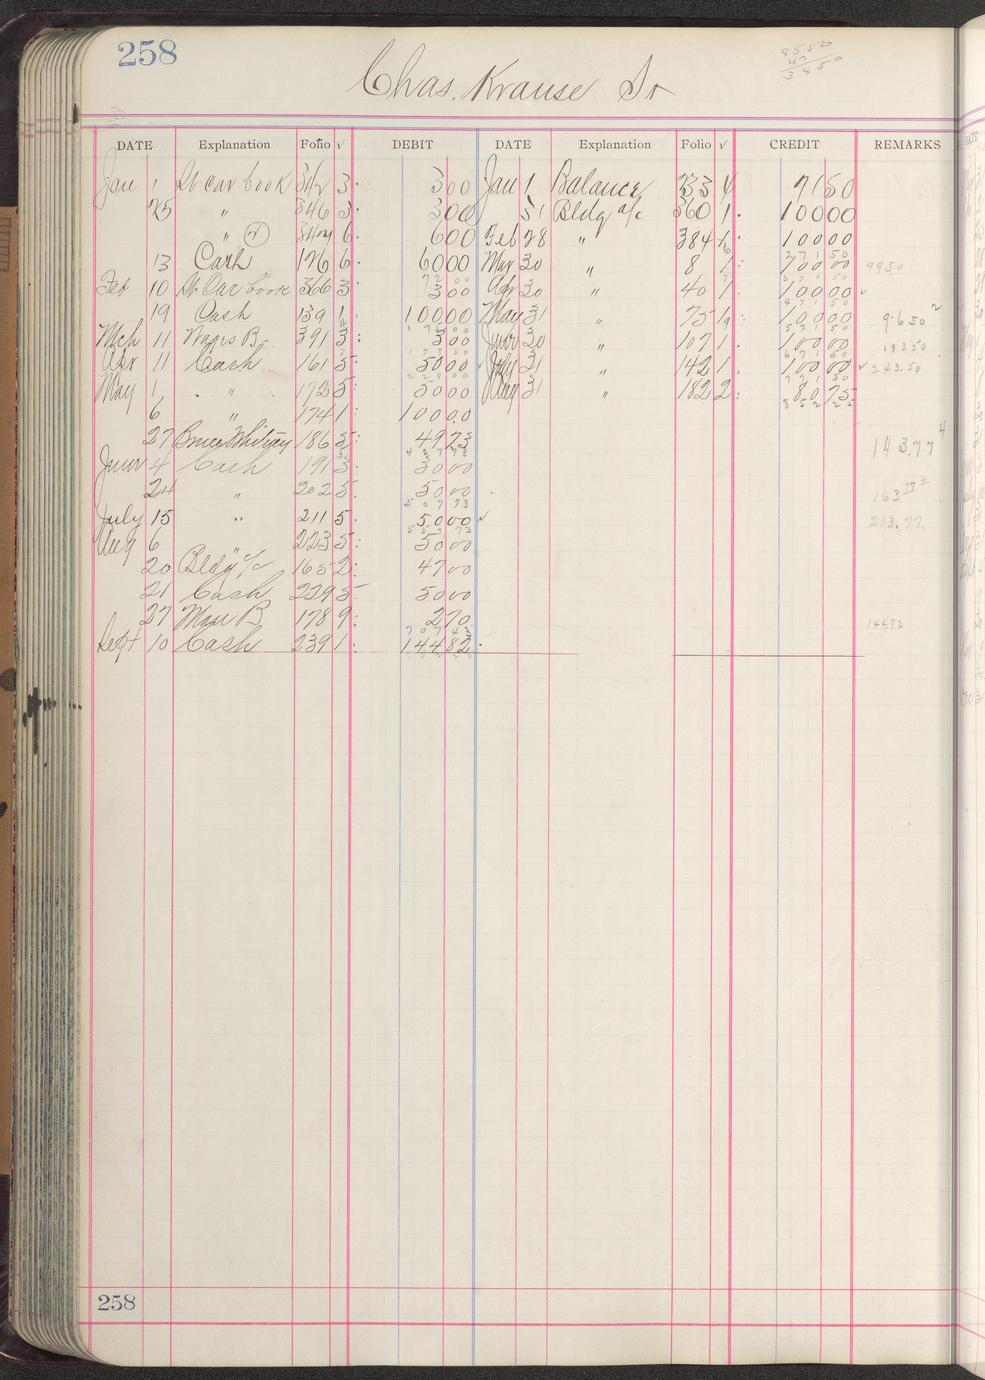 258
Chas. Krause Sr
8550
47
3850
DATE Explanation Folio √ DEBIT DATE Explanation Folio √ CREDIT REMARKS
Jan 1 St Car book 342 3 300 Jan 1 Balance 233 4 7150
25 " 346 3 300 31 Bldg a/c 360 1 10000
" 6 600 Feb 28 " 384 10000
13 Cash 126 6 6000 Mar 30 " 8 1 10000 9950
Feb 10 St Car book 366 3 300 Apr 30 " 40 1 10000
19 Cash 139 1 10000 May 31 " 75 10000 9650
Mch 11 Wages B 391 3 300 June 30 " 107 1 10000 19350
Apr 11 Cash 161 5 5000 July 31 " 142 1 10000 24350
May 1 " 172 5 5000 Aug 31 " 182 2 8075
6 " 174 1 10000
27 Bruce Whitney 186 5 4973 143.77
June 4 Cash 191 5 5000
24 " 202 5 5000 163
July 15 " 211 5 5000 213.77
Aug 6 " 223 5 5000
20 Bldg a/c 165 2 4700
21 Cash 229 5 5000
27 Man B 178 9 270 14482
Sept 10 Cash 239 1 14482
258